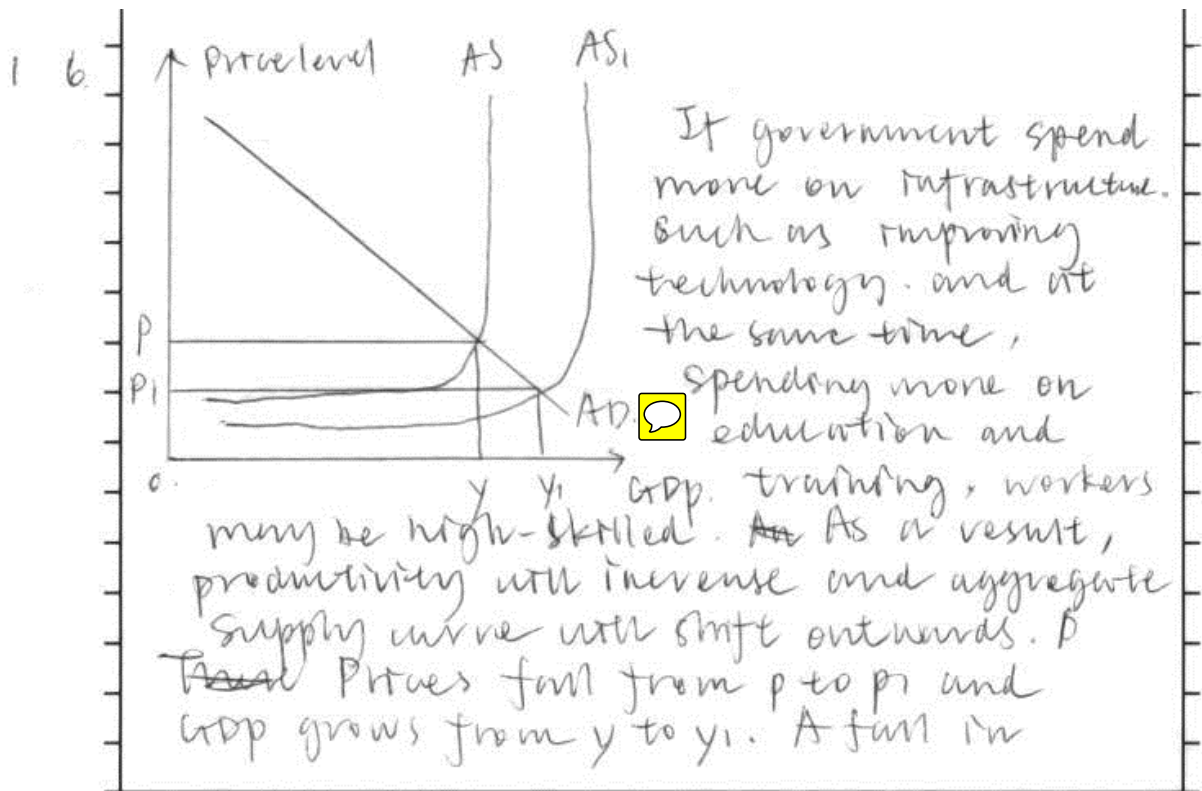 1 6.
Price level AS AS1
If government spend
more on infrastructure.
such as improving
technology. and at
P the same time,
P1 spending more on
AD. education and
0. y y1 GDP. training, workers
may be high-skilled. An As a result,
productivity will increase and aggregate
supply curve will shift outwards. P
Prices fall from p to p1 and
GDP grows from y to y1. A fall in